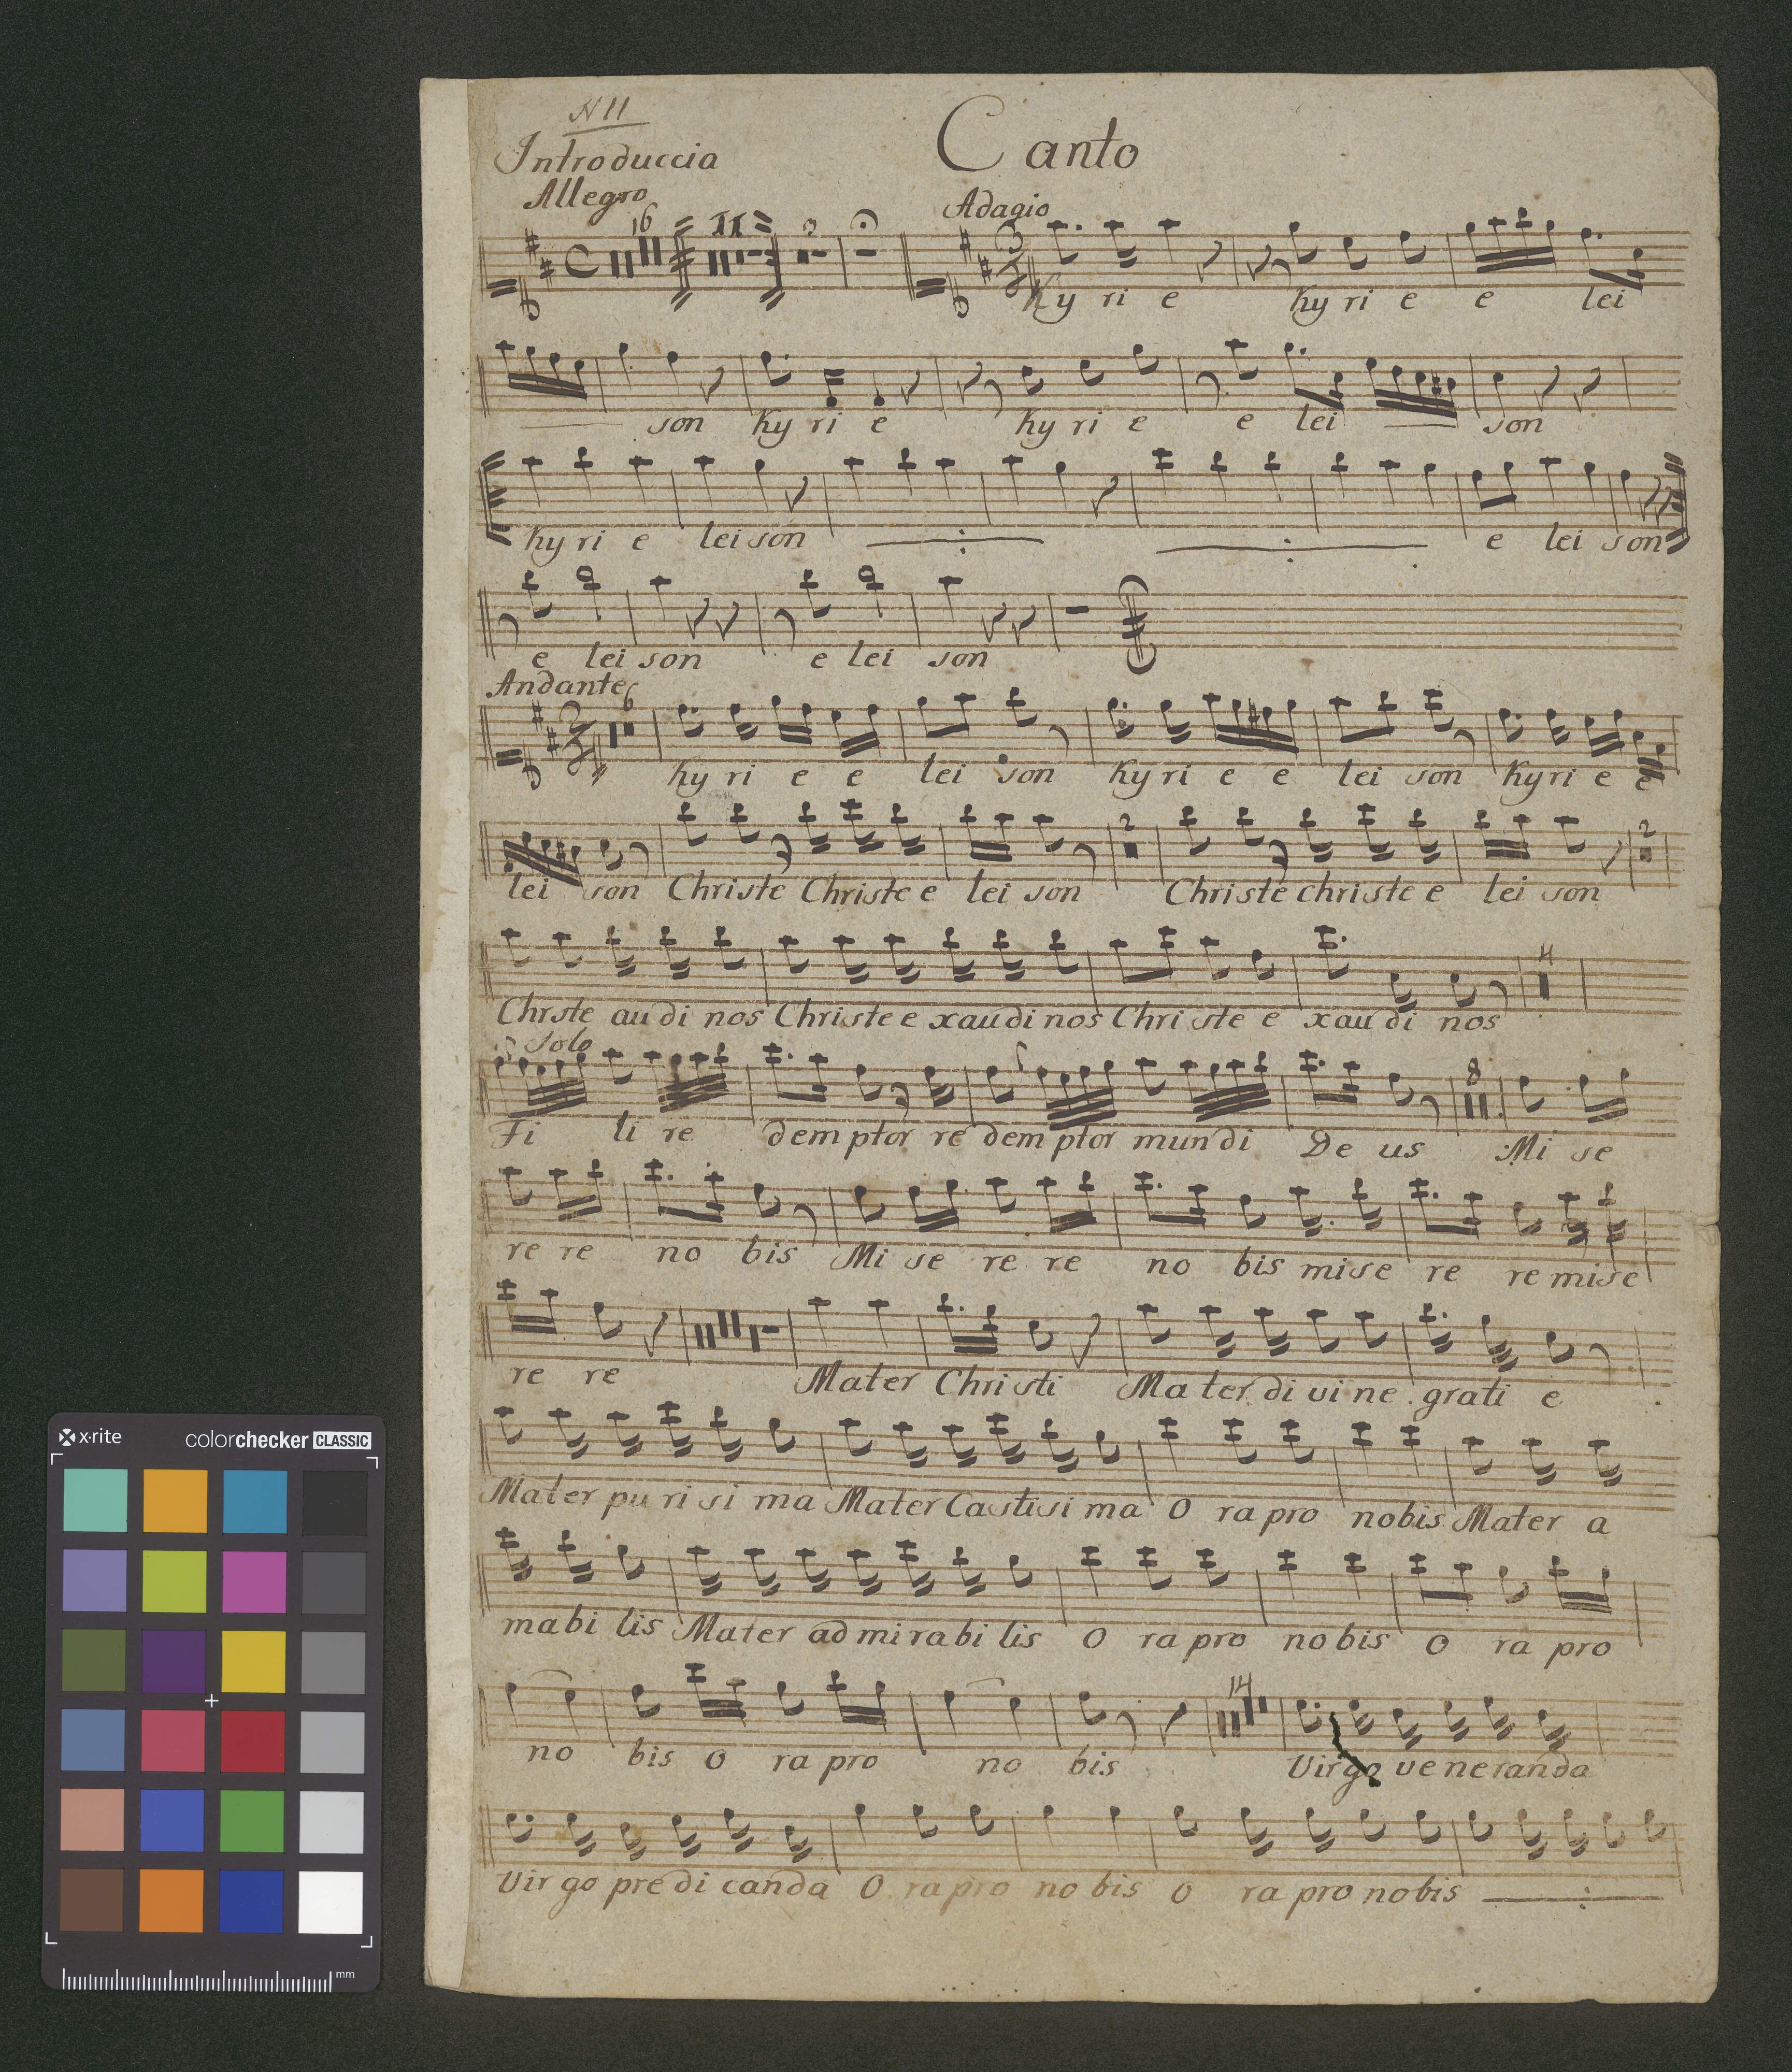 N 11
Introduccia
Canto
Allegro
Adagio
16
II
2
Ky ri e ky ri e e lei
son ky ri e ky ri e e lei son
ky ri e lei son e lei son
e lei son e lei son
Andante
6
ky ri e e lei son ky ri e e lei son kyri e e
2
2
lei son Christe Christe e lei son Christe christe e lei son
4
Chrste au di nos Christe e xau di nos Chri ste e xau di nos
Solo
8
Fi li re dem ptor re dem ptor mun di De us Mi se
re re no bis Mi se re re no bis mi se re re mi se
re re Mater Chri sti Ma ter di vi ne grati e
Mater pu ri si ma Mater Castisi ma O ra pro nobis Mater a
ma bi lis Mater ad mi ra bi lis O ra pro no bis O ra pro
14
no bis O ra pro no bis Virgo ve ne randa
Vir go pre di canda O ra pro no bis O ra pro no bis
x·rite
colorchecker CLASSIC
mm